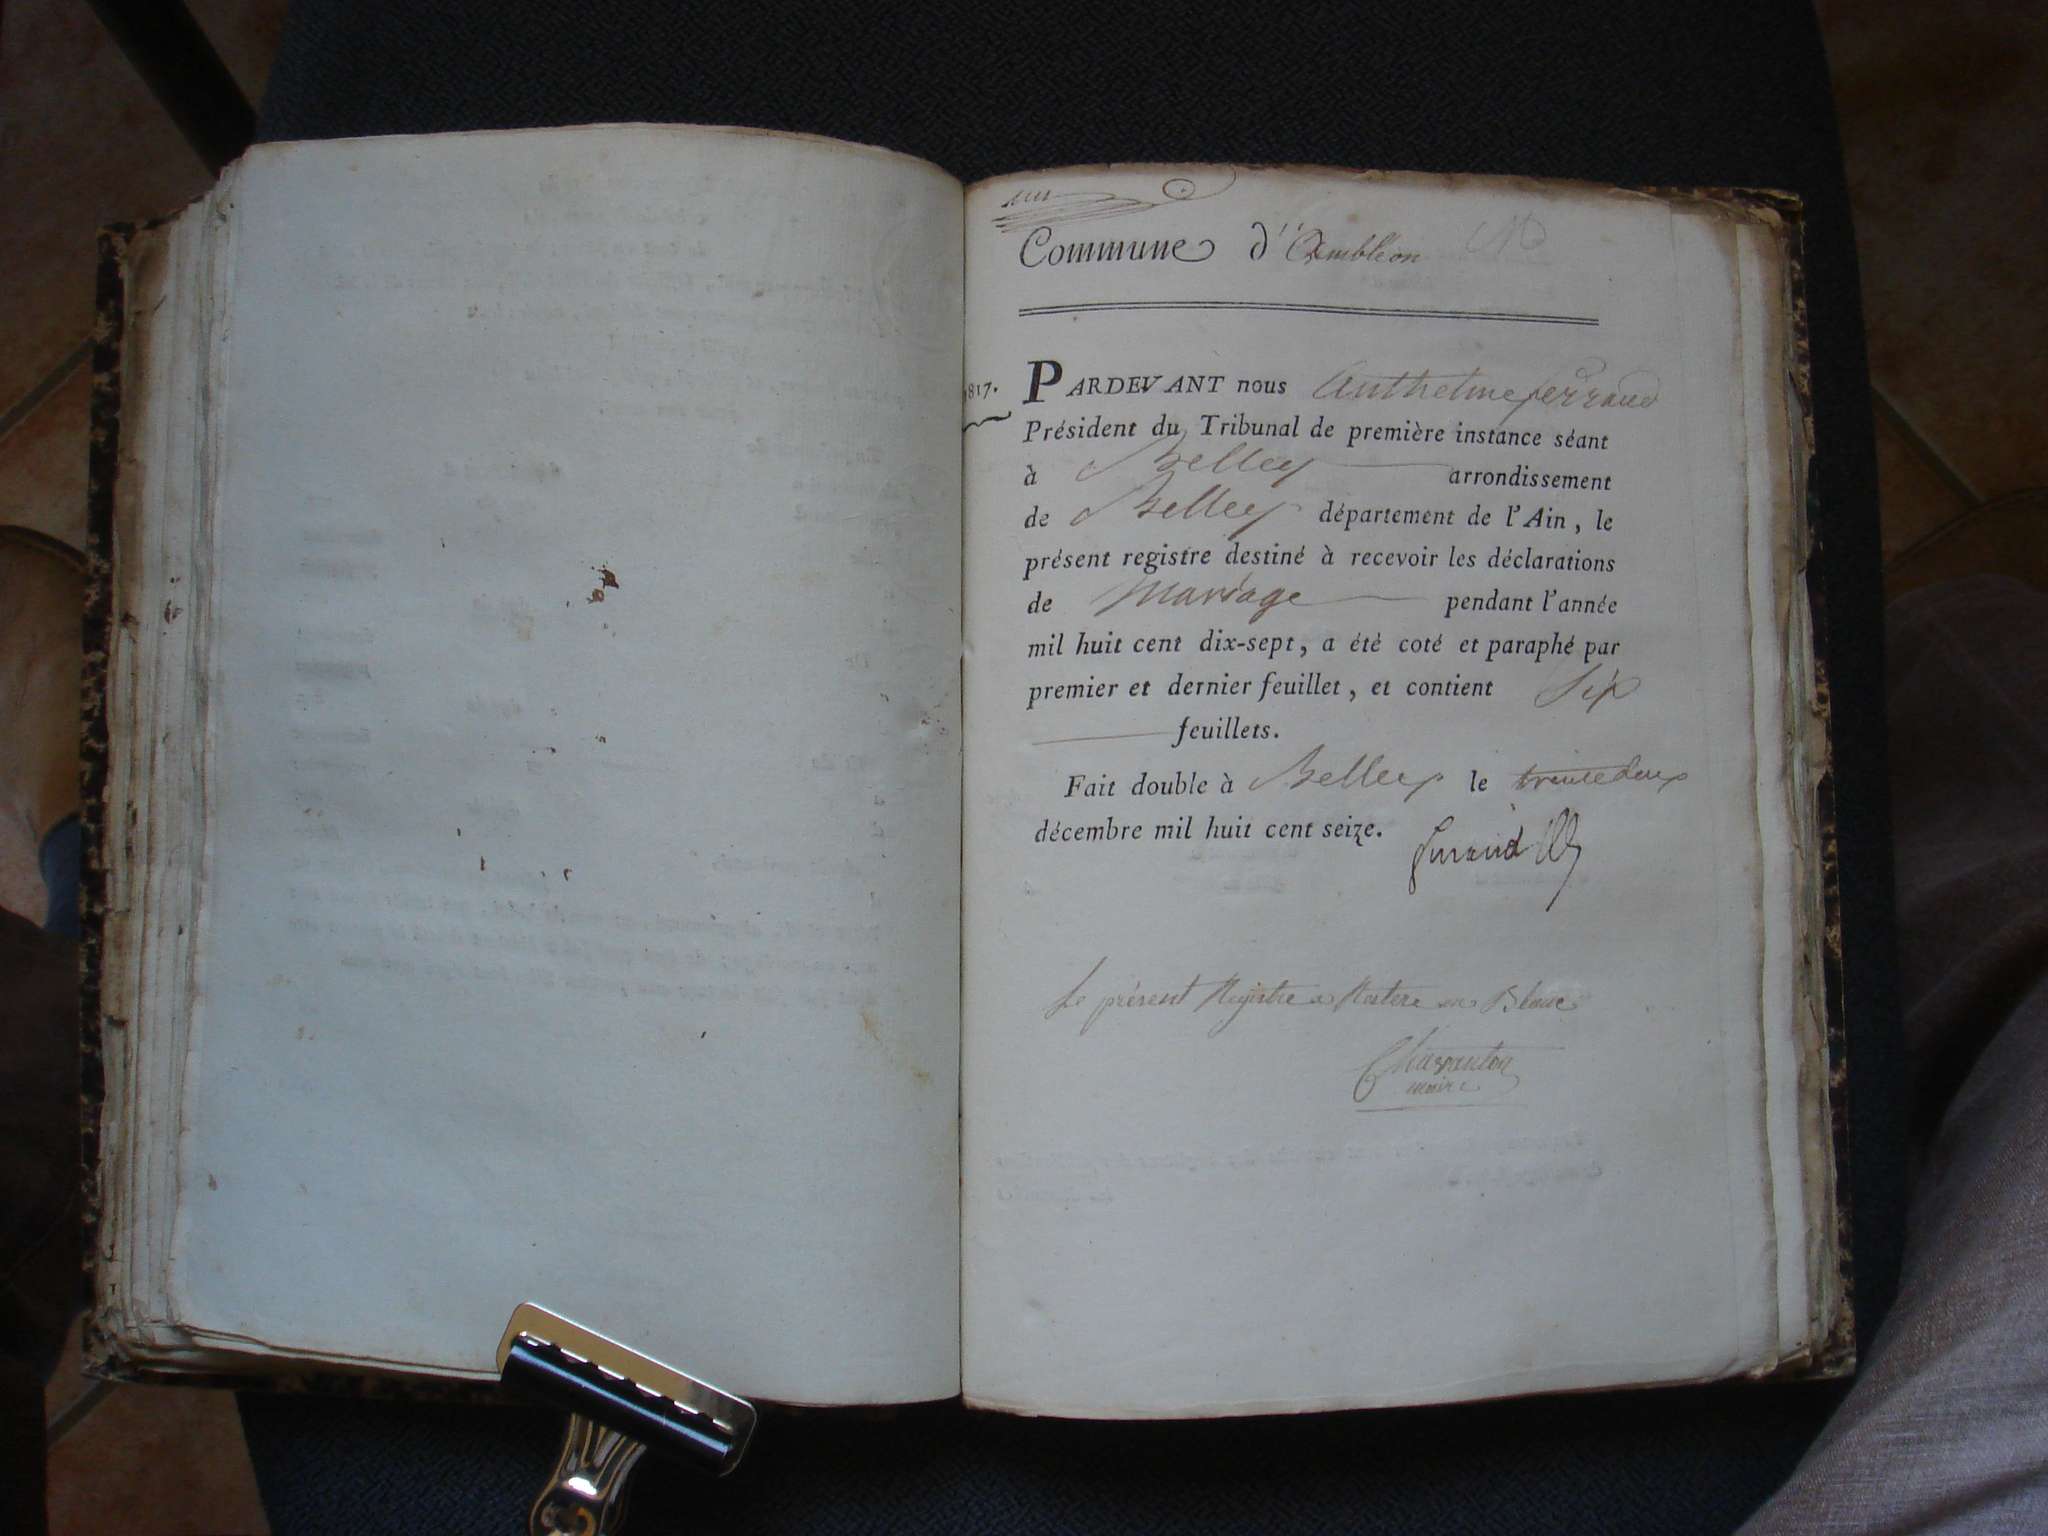 Commune d' Ambléon
817. PARDEVANT nous Anthelme ferrand
Président du Tribunal de première instance séant
à Belley arrondissement
de Belley département de l'Ain, le
présent registre destiné à recevoir les déclarations
de Mariage pendant l'année
mil huit cent dix-sept, a été coté et paraphé par
premier et dernier feuillet, et contient Six
feuillets.
Fait double à Belley le
décembre mil huit cent seize.
Le présent Registre a en Blanc
maire